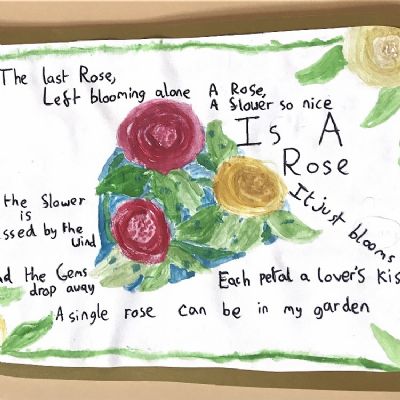 The last Rose,
Left blooming alone
A Rose,
A flower so nice
Is A
Rose
It just blooms
the flower
is
ssed by the
wind
nd the Gems
drop away
Each petal a lover's kis
A single rose can be in my garden